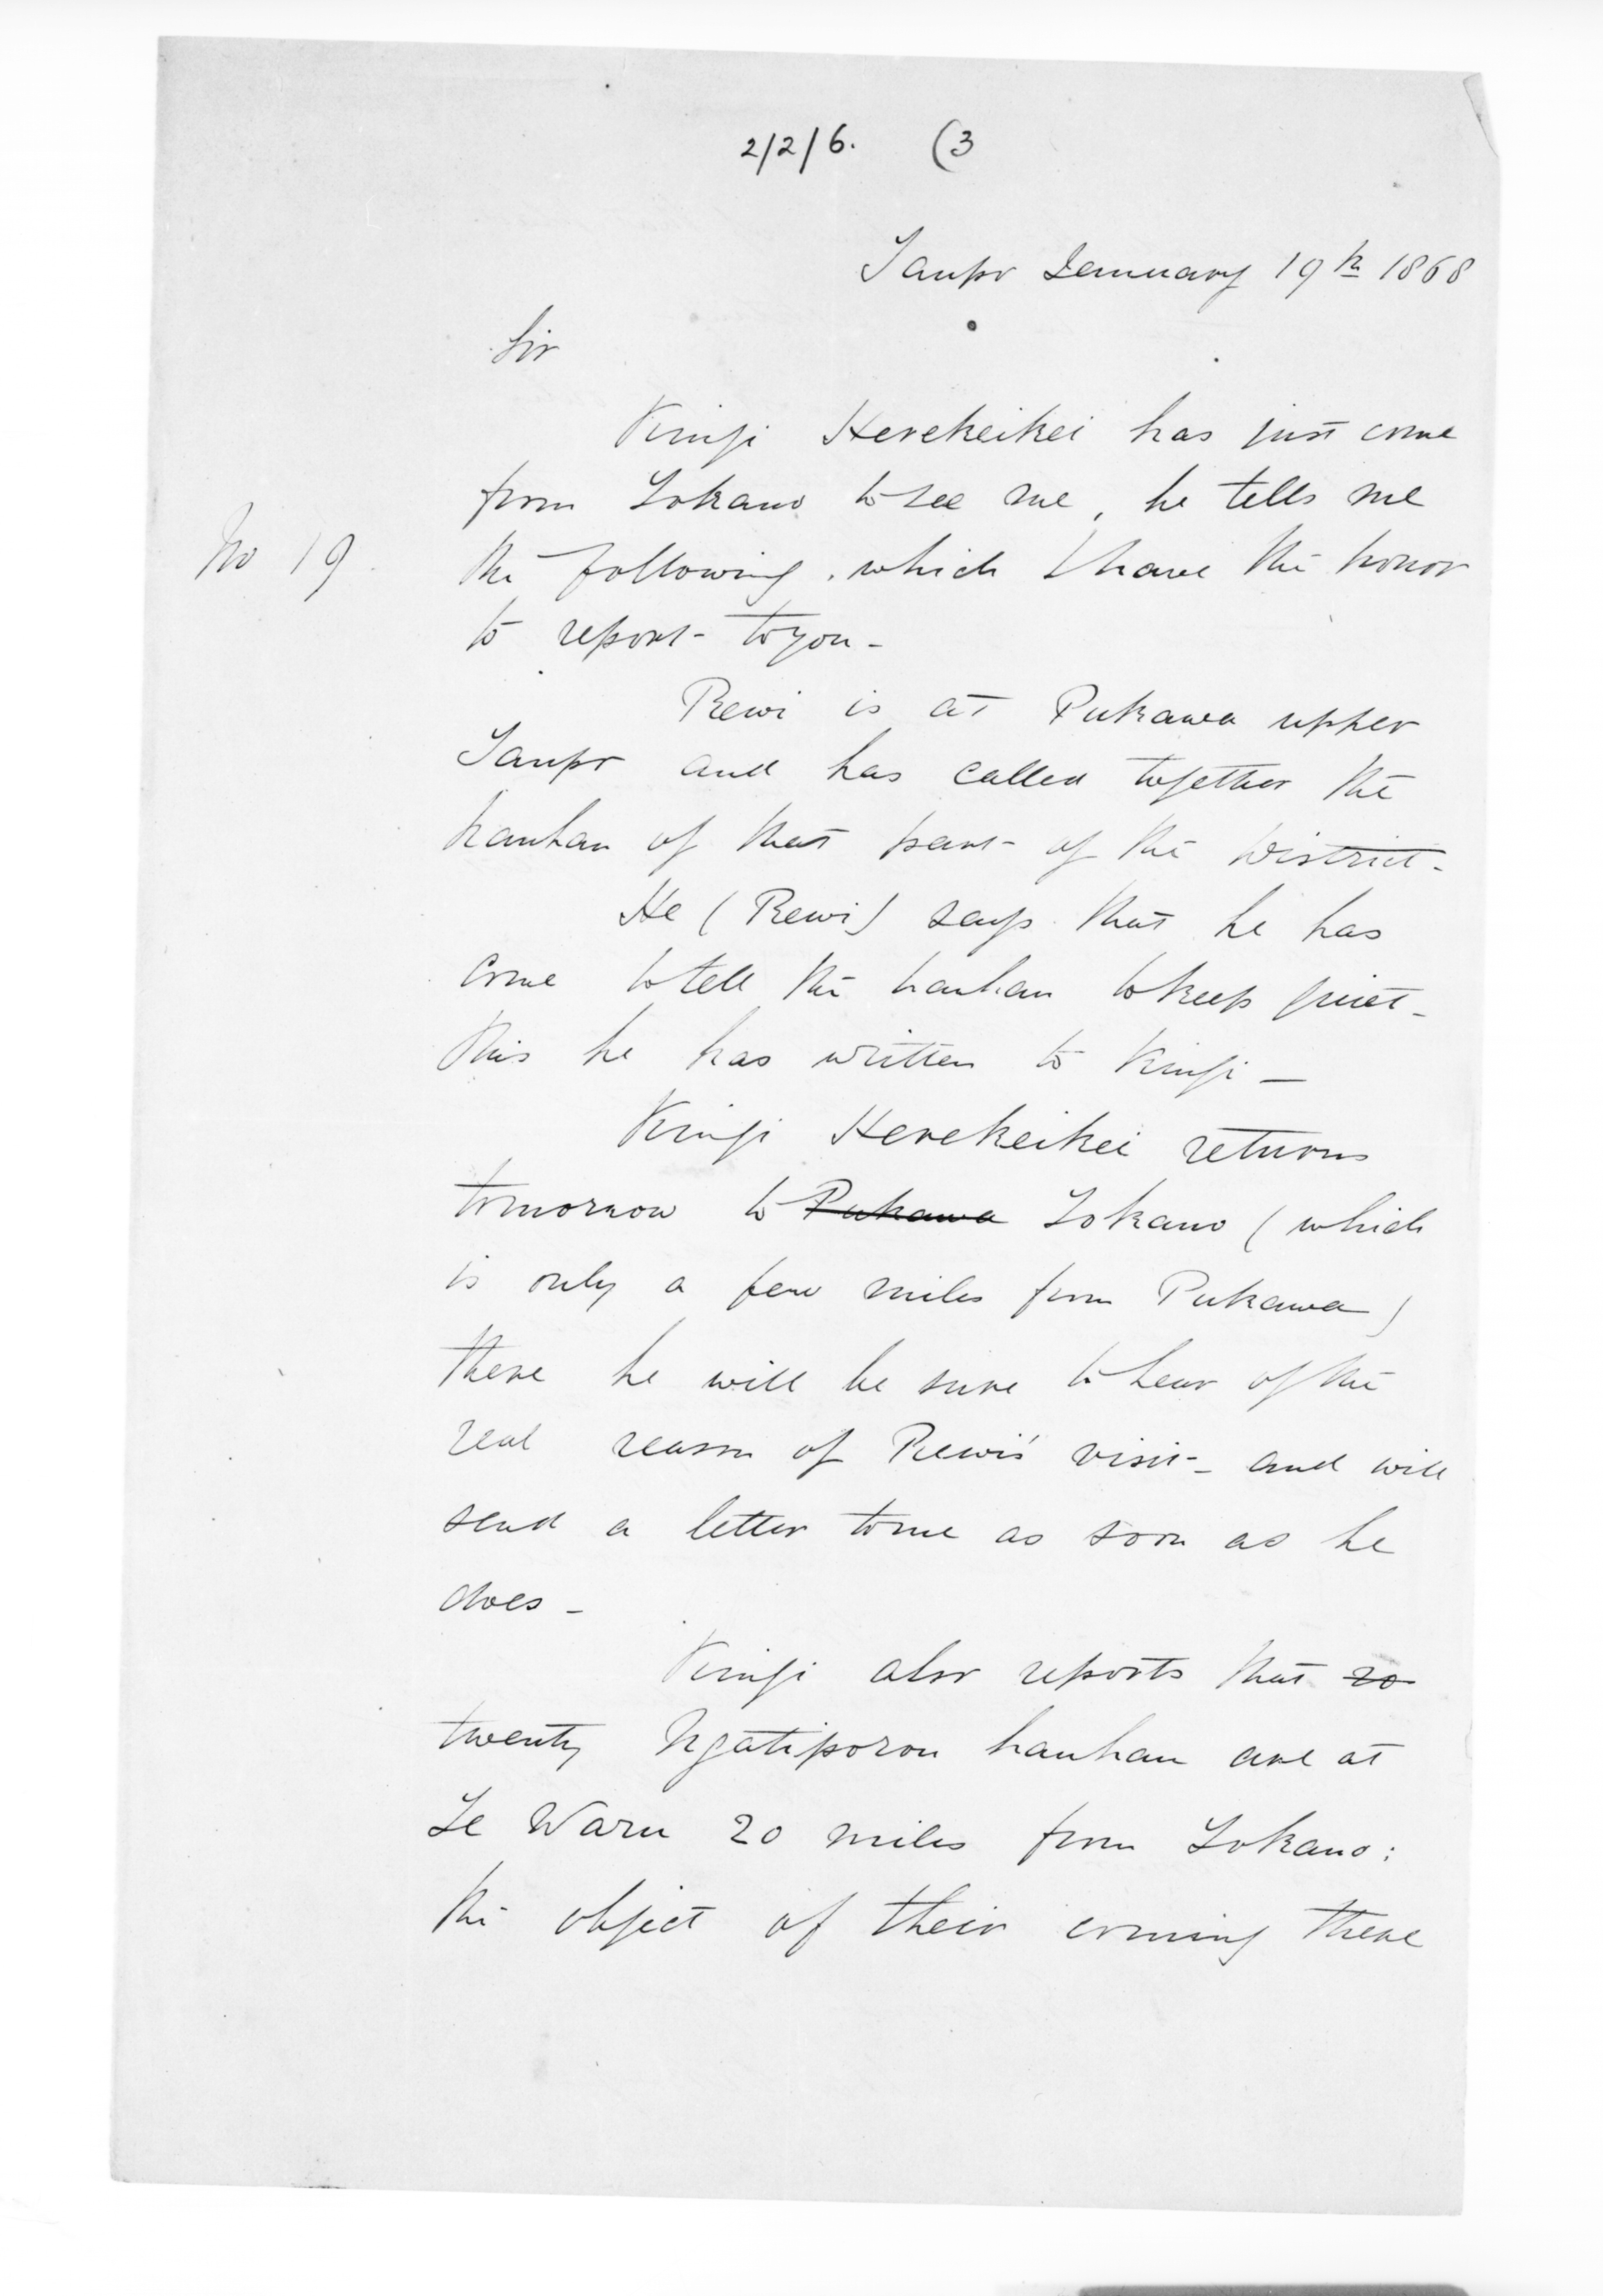 2/2/6. (3
Taupo January 19th 1868
Sir
Kingi Herekeikei has just come
from Tokano to see me, he tells me
No 19.
the following, which I have the honor
to report to you -
Rewi is at Pukawa upper
Taupo and has called together the
hauhau of that part of the District -
He (Rewi) says that he has
come to tell the hauhau to keep quiet -
this he has written to Kingi -
Kingi Herekeikei returns
tomorrow to Pukawa Tokano (which
is only a few miles from Pukawa)
there he will be sure to hear of the
real reason of Rewi's visit - and will
send a letter to me as soon as he
does -
Kingi also reports that 20
twenty Ngatiporou hauhau are at
Te Waru 20 miles from Tokano:
the object of their coming there